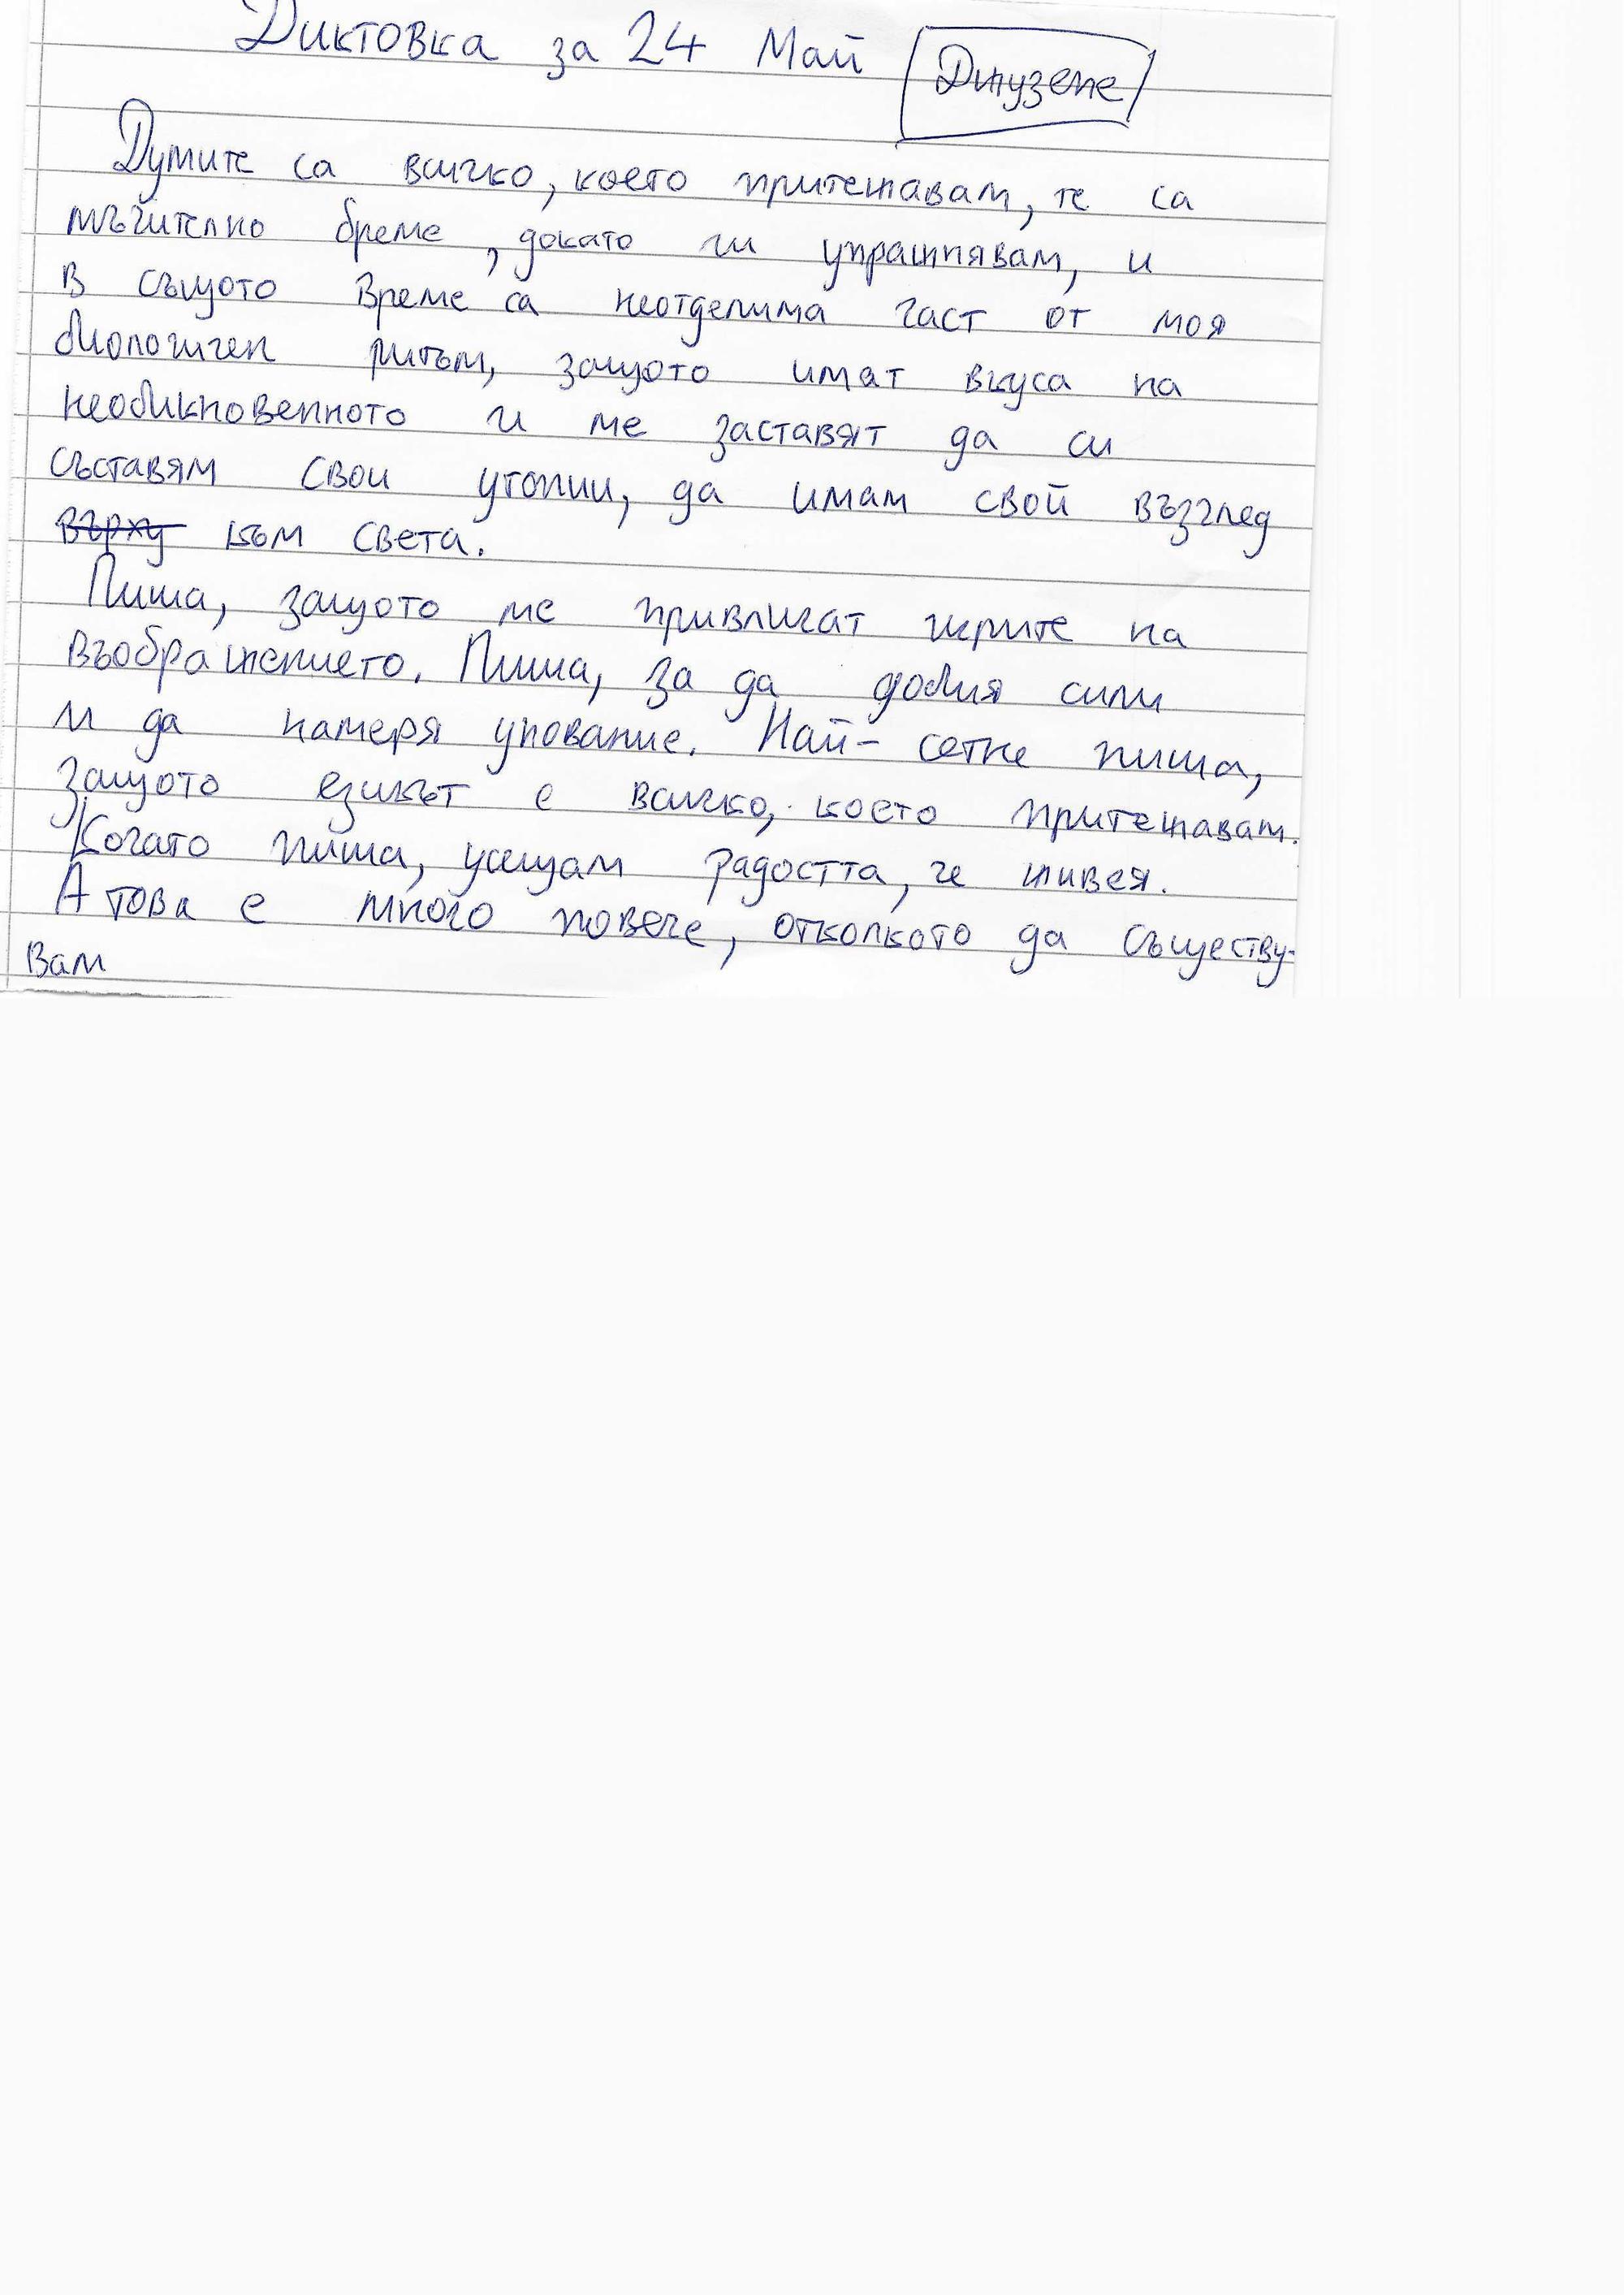 Диктовка за 24 Май Джузепе
Думите са всичко, което притежавам, те са
мъчително бреме, докато ги упражнявам, и
в същото време са неотделима част от моя
биологичен ритъм, защото имат вкуса на
необикновенното и ме заставят да си
съставям свои утопии, да имам свой възглед
върху към света.
Пиша, защото ме привличат игрите на
въображението. Пиша, за да добия сили
и да намеря упование. Най- сетне пиша,
защото езикът е всичко, което притежавам.
Когато пиша, усещам радостта, че живея.
А това е много повече, отколкото да съществу-
вам